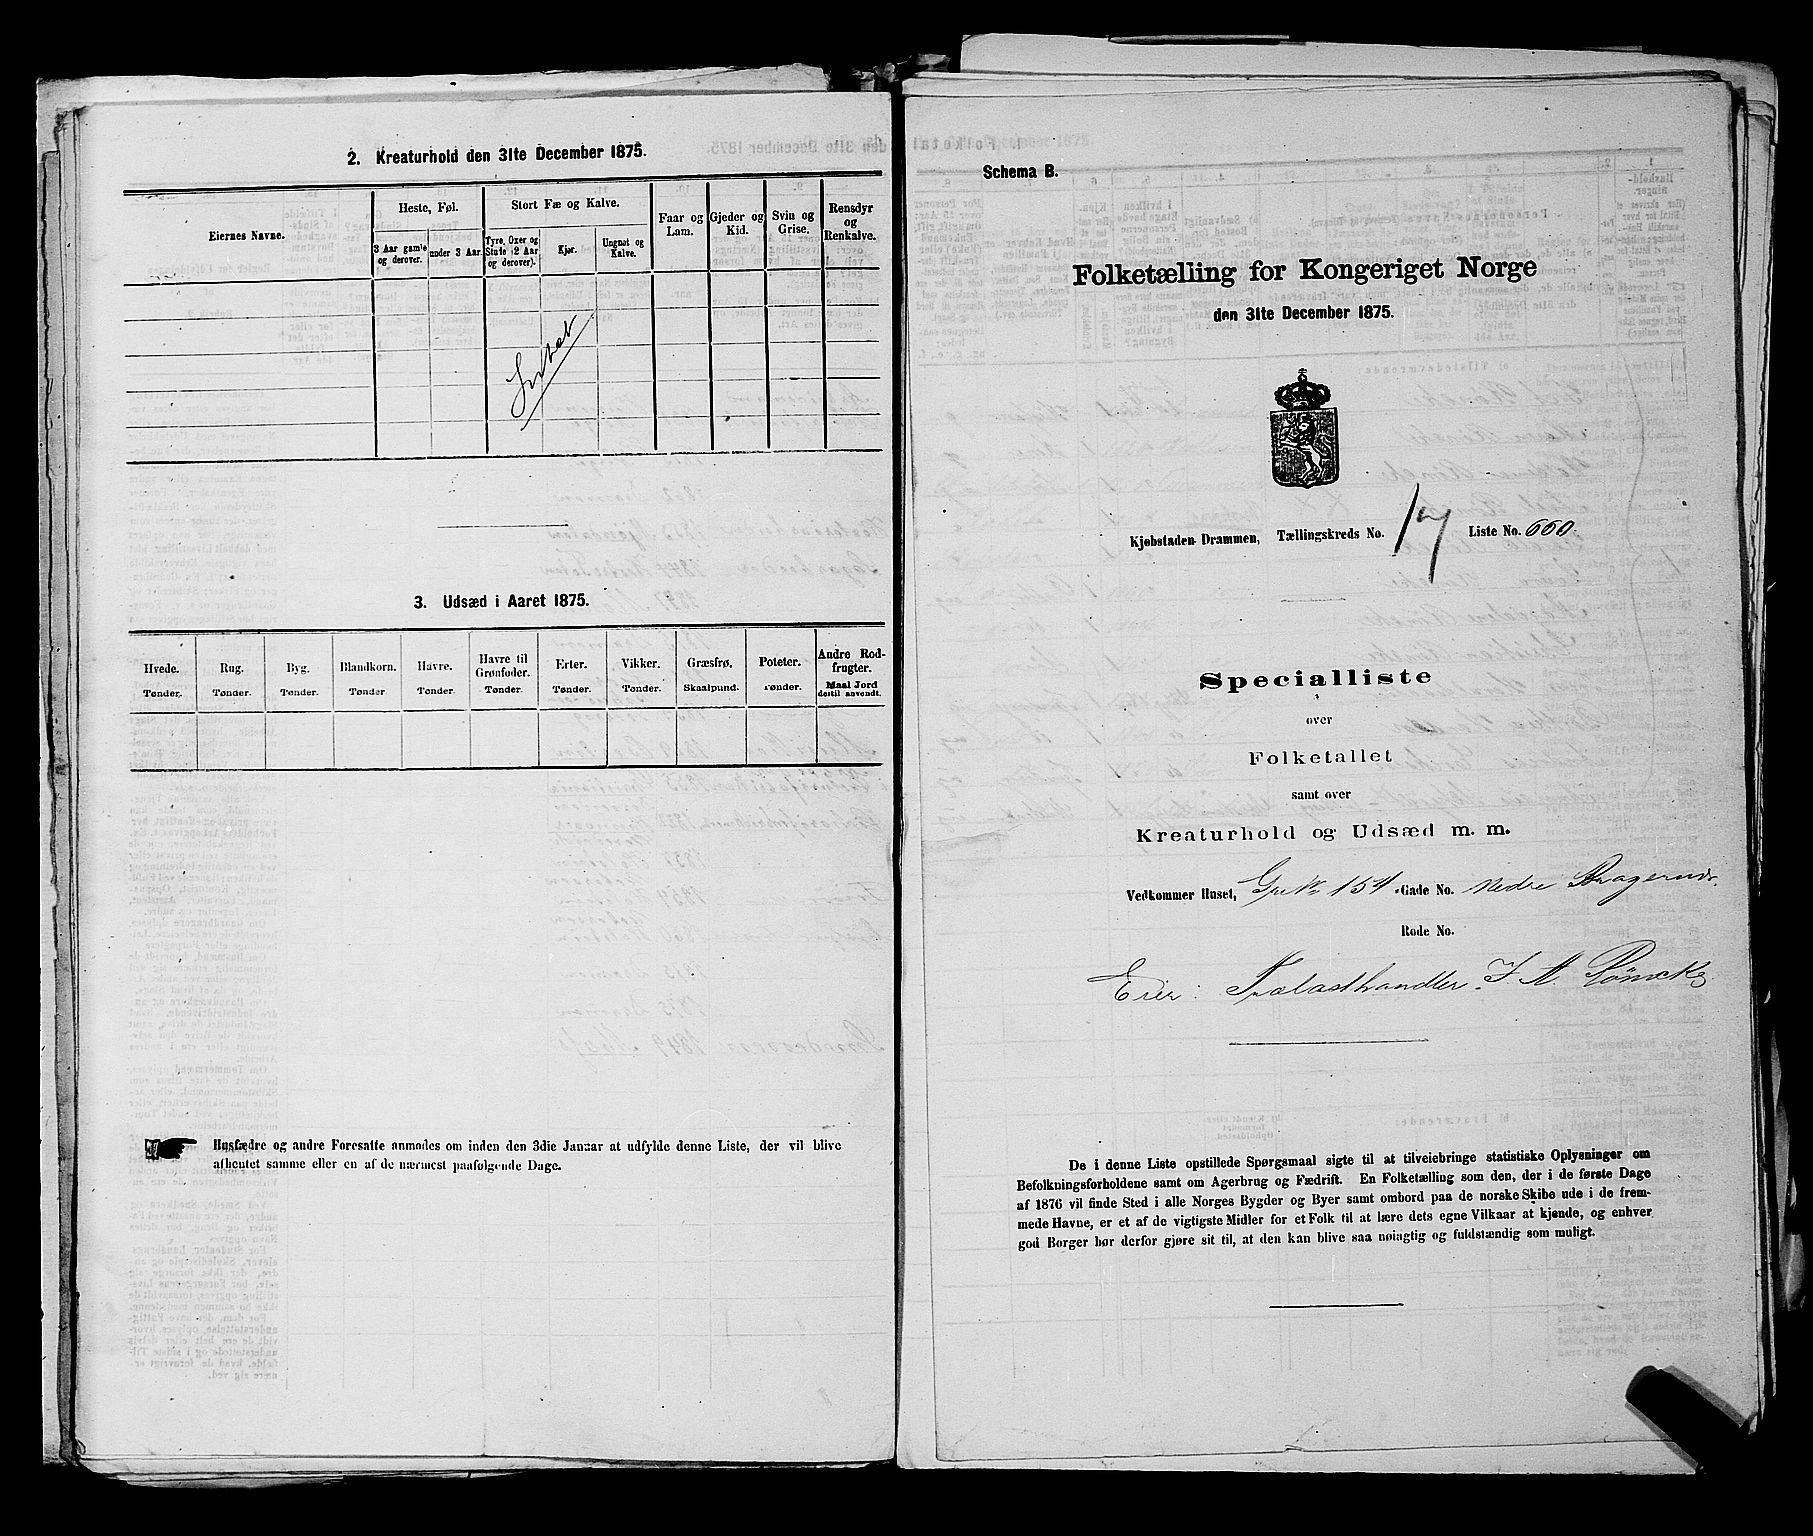 2. Kreaturhold den 31te December 1875.
Eiernes Navne.
Heste, Føl.
3 Aar gamle og derover.
under 3 Aar.
Stort Fæ og Kalve.
Tyre, Oxer og Stude (2 Aar og derover).
Kjør.
Ungnøt og Kalve.
Faar og Lam.
Gjeder og Kid.
Svin og Grise.
Rensdyr og Renkalve.
Intet
3. Udsæd i Aaret 1875.
Hvede. Rug. Byg. Blandkorn. Havre. Havre til Grønfoder. Erter. Vikker. Græsfrø. Poteter. Andre Rodfrugter.
Tønder. Tønder. Tønder. Tønder Tønder. Tønder. Tønder. Tønder. Skaalpund. Tønder. Maal Jord dertil anvendt.
Husfædre og andre Foresatte anmodes om inden den 3die Januar at udfylde denne Liste, der vil blive
afhentet samme eller en af de nærmest paafølgende Dage.
Schema B.
Folketælling for Kongeriget Norge
den 31te December 1875.
Kjøbstaden Drammen, Tællingskreds No. 17 Liste No. 660.
Specialliste
over
Folketallet
samt over
Kreaturhold og Udsæd m. m.
Vedkommer Huset, 154 Gade No. Nedre Bragernæs.
Rode No.
Eier: Trælasthandler J. A. Röneke
De i denne Liste opstillede Spørgsmaal sigte til at tilveiebringe statistiske Oplysninger om
Befolkningsforholdene samt om Agerbrug og Fædrift. En Folketælling som den, der i de første Dage
af 1876 vil finde Sted i alle Norges Bygder og Byer samt ombord paa de norske Skibe ude i de frem-
mede Havne, er et af de vigtigste Midler for et Folk til at lære dets egne Vilkaar at kjende, og enhver
god Borger bør derfor gjøre sit til, at den kan blive saa nøiagtig og fuldstændig som muligt.